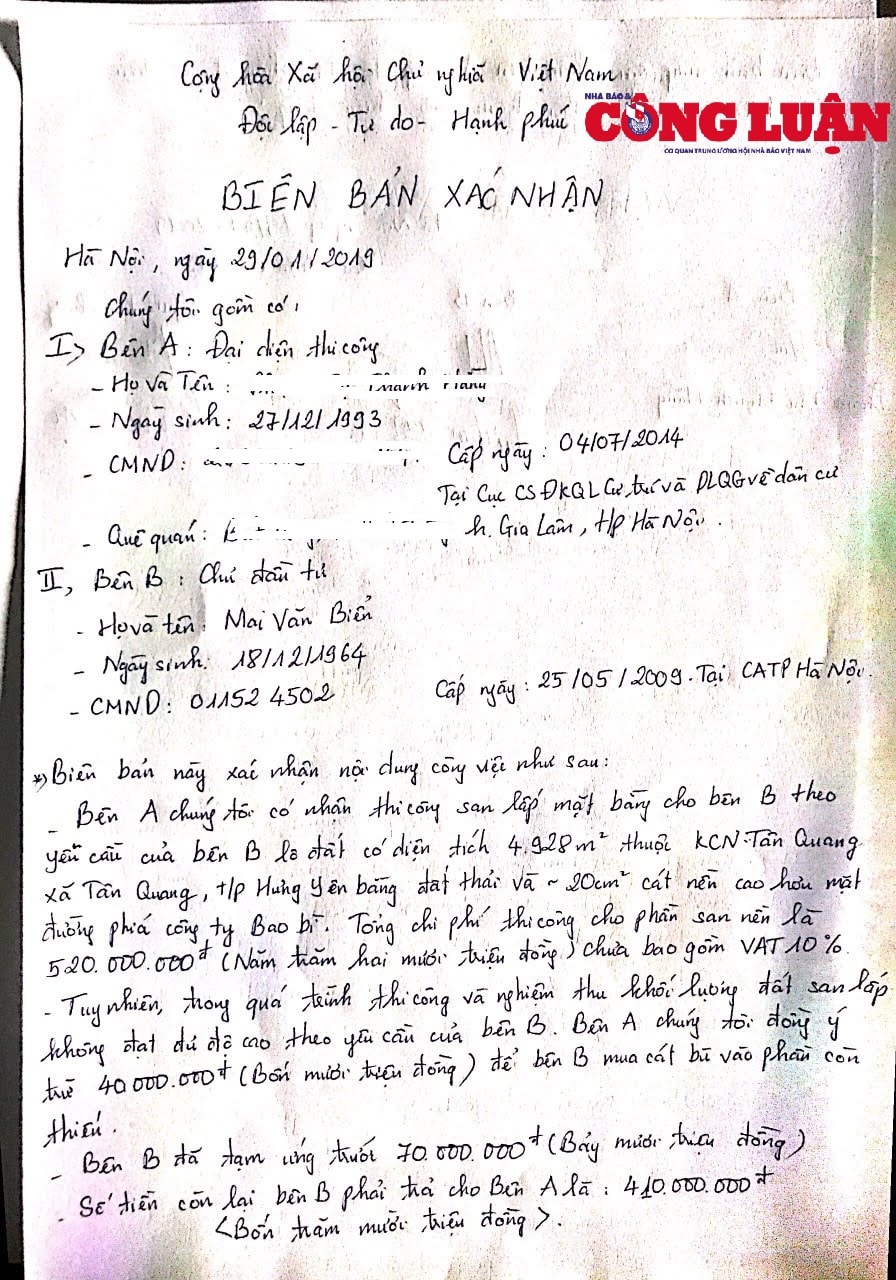 Cộng hòa Xã hội Chủ nghĩa Việt Nam
Độc lập - Tự do - Hạnh phúc
NHÀ BÁO &
CÔNG LUẬN
CƠ QUAN TRUNG ƯƠNG HỘI NHÀ BÁO VIỆT NAM
BIÊN BẢN XÁC NHẬN
Hà Nội, ngày 29/01/2019
Chúng tôi gồm có:
I> Bên A: Đại diện thi công
- Họ và Tên:
- Ngày sinh: 27/12/1993
- CMND: Cấp ngày: 04/07/2014
Tại Cục CSĐKQL Cư trú và DLQG về dân cư
- Quê quán: h. Gia Lâm, t/p Hà Nội.
II, Bên B: Chủ đầu tư
- Họ và tên: Mai Văn Biển
- Ngày sinh: 18/12/1964
- CMND: 01152 4502 Cấp ngày: 25/05/2009. Tại CATP Hà Nội.
*) Biên bản này xác nhận nội dung công việc như sau:
- Bên A chúng tôi có nhận thi công san lấp mặt bằng cho bên B theo
yêu cầu của bên B lô đất có diện tích 4.928m² thuộc KCN Tân Quang
xã Tân Quang, t/p Hưng Yên bằng đất thải và ~ 20cm² cát nền cao hơn mặt
đường phía công ty Bao bì. Tổng chi phí thi công cho phần san nền là
520.000.000đ (Năm trăm hai mươi triệu đồng) chưa bao gồm VAT 10%.
- Tuy nhiên, trong quá trình thi công và nghiệm thu khối lượng đất san lấp
không đạt đủ độ cao theo yêu cầu của bên B. Bên A chúng tôi đồng ý
trừ 40.000.000đ (Bốn mươi triệu đồng) để bên B mua cát bù vào phần còn
thiếu.
- Bên B đã tạm ứng trước 70.000.000đ (Bảy mươi triệu đồng)
- Số tiền còn lại bên B phải trả cho Bên A là: 410.000.000đ
<Bốn trăm mười triệu đồng>.